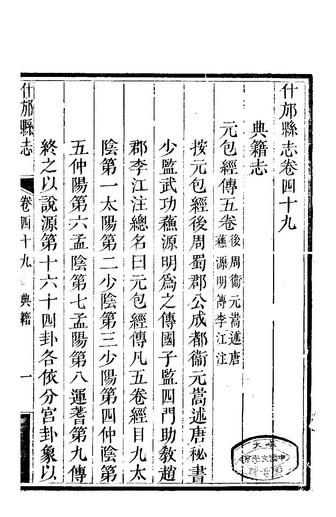 什邡縣志卷四十九
典籍志
元包經傳五卷 後周衞元嵩述唐
蘇源明傳李江注
按元包經後周蜀郡公成都衞元嵩述唐秘書
少監武功蘇源明爲之傳國子監四門助敎趙
郡李江注總名曰元包經傳凡五卷經目九太
陰第一太陽第二少陰第三少陽第四仲陰第
五仲陽第六孟陰第七孟陽第八運蓍第九傳
終之以說源第十六十四卦各依分宮卦象以
什邡縣志
卷四十九 典籍
一